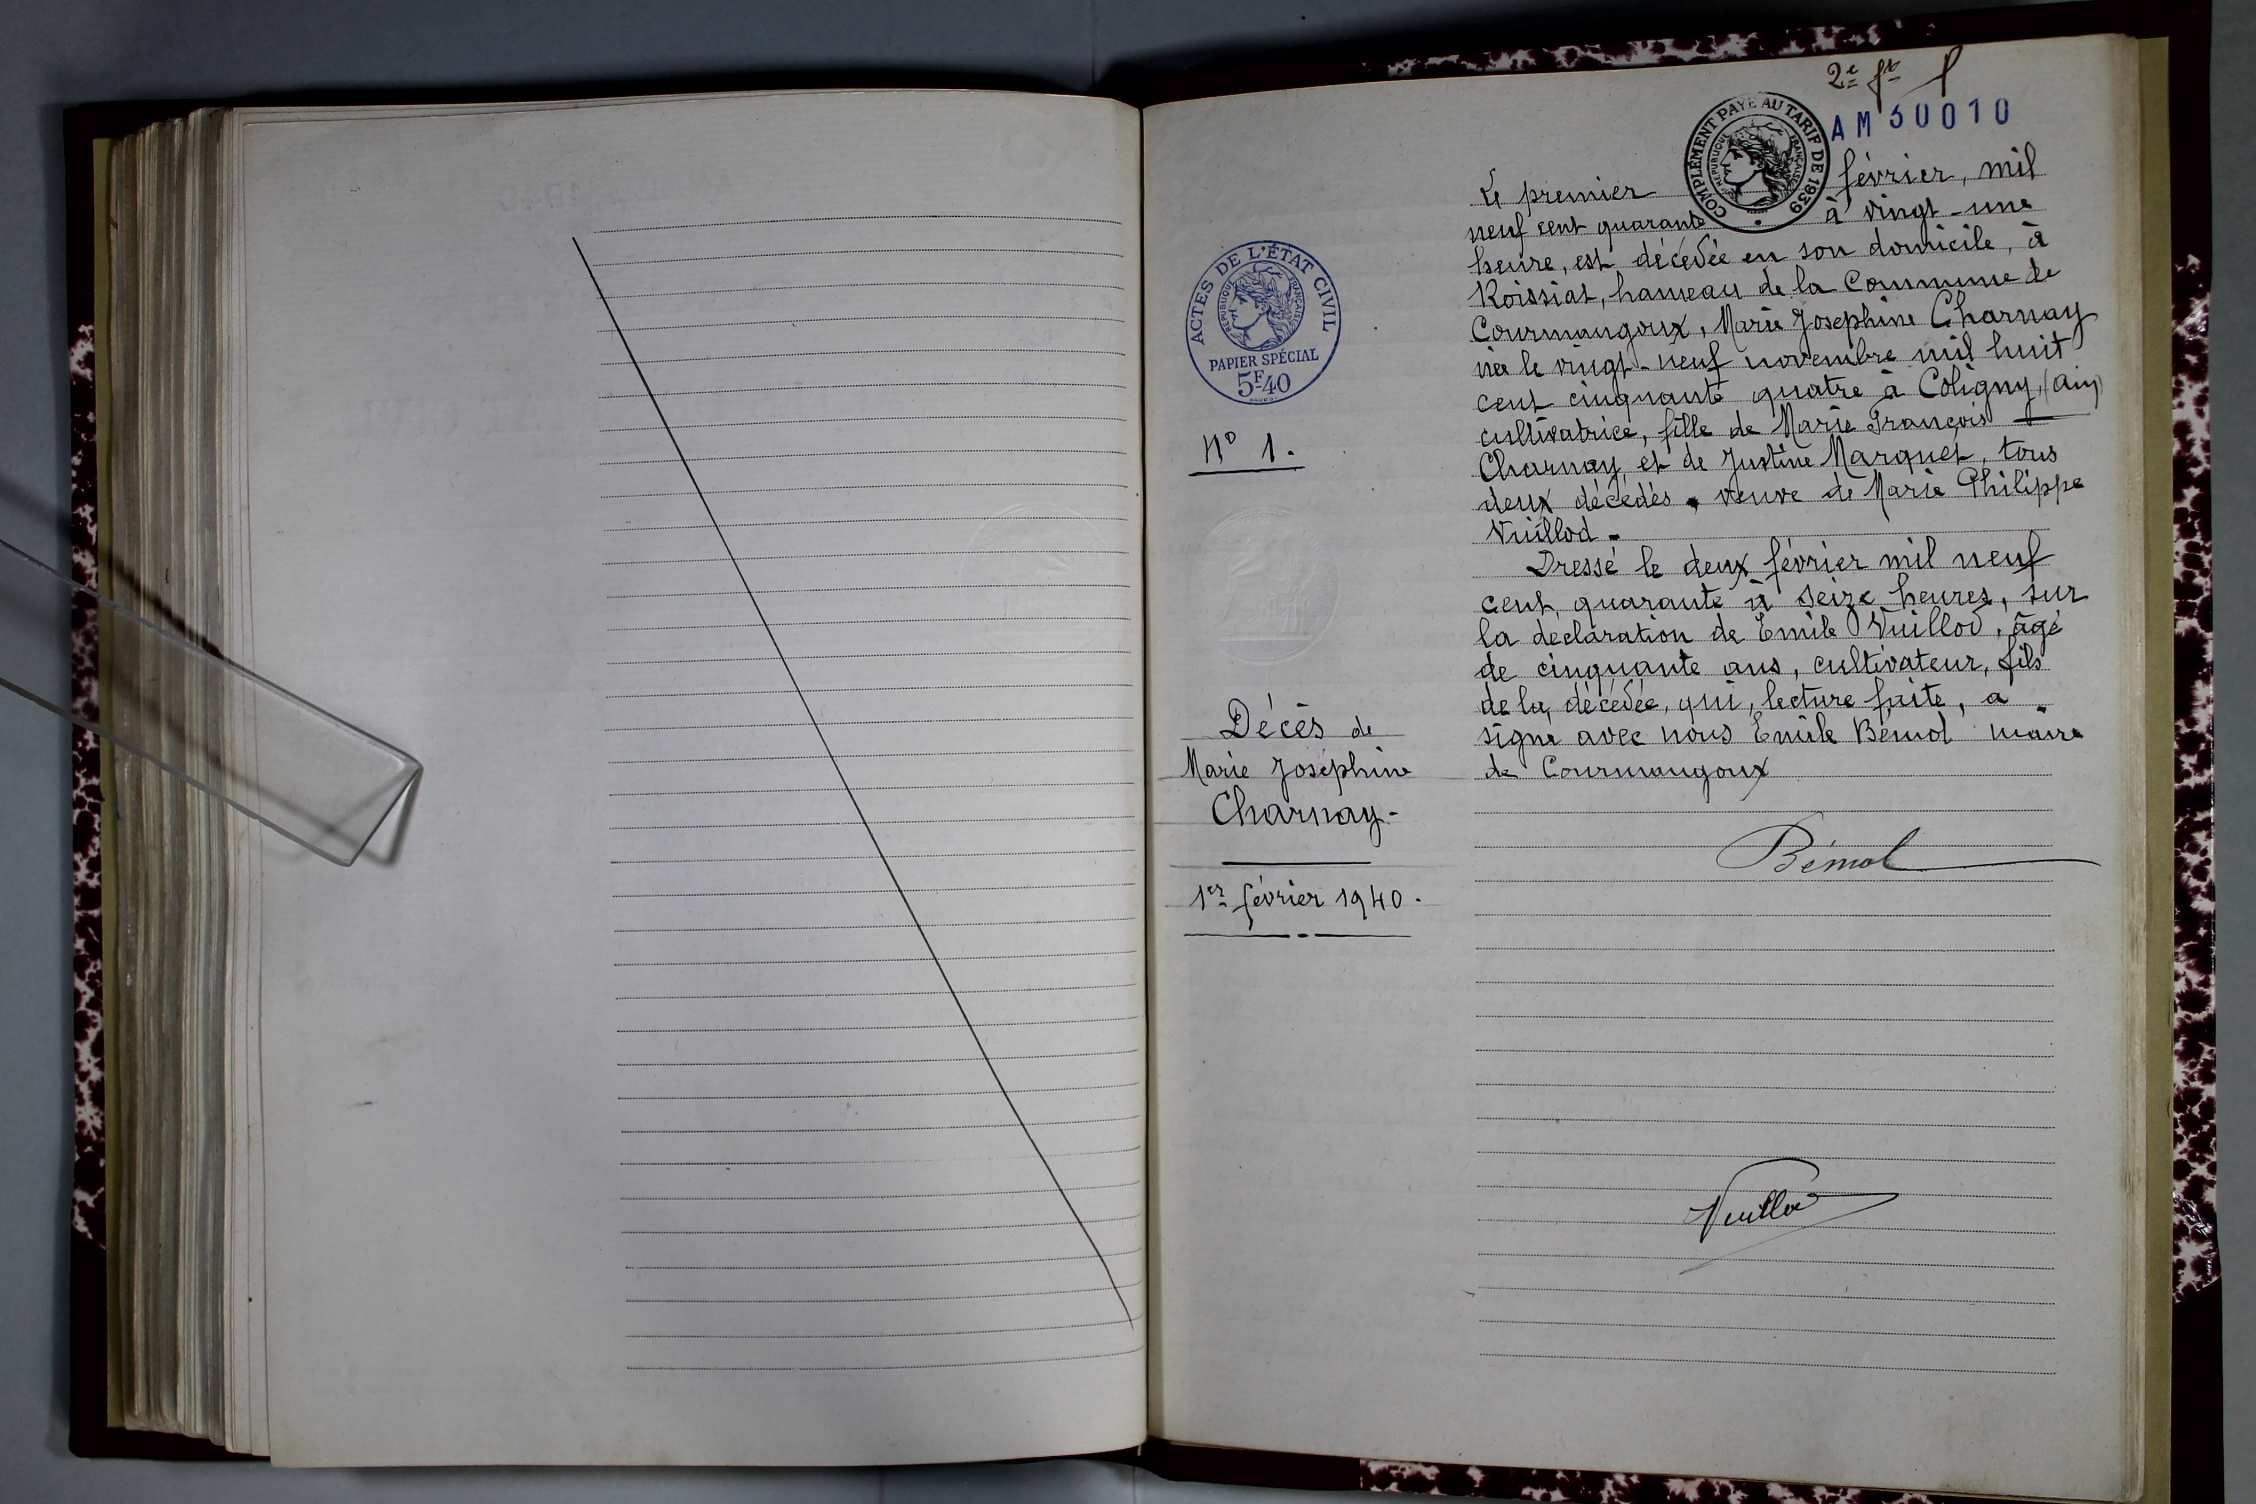 2e ft
AM 50010
COMPLÉMENT PAYÉ AU TARIF DE 1939
RÉPUBLIQUE FRANÇAISE
ACTES DE L'ÉTAT CIVIL
RÉPUBLIQUE FRANÇAISE
PAPIER SPÉCIAL
5F40
N° 1.
Décès de
Marie Joséphine
Charnay-
1er février 1940.
Le premier février, mil
neuf cent quarante à vingt-une
heure, est décédée en son domicile, à
Roissiat, hameau de la Commune de
Courmangoux, Marie Joséphine Charnay
née le vingt-neuf novembre mil huit
cent cinquante quatre à Coligny, (Ain)
cultivatrice, fille de Marie François
Charnay et de Justine Marquet, tous
deux décédés. veuve de Marie Philippe
Vuillod.
Dressé le deux février mil neuf
cent, quarante à seize heures, sur
la déclaration de Emile Vuillod, âgé
de cinquante ans, cultivateur, fils
de la décédée, qui, lecture faite, a
signé avec nous Emile Bémol maire
de Courmangoux
Bémol
Vuillod